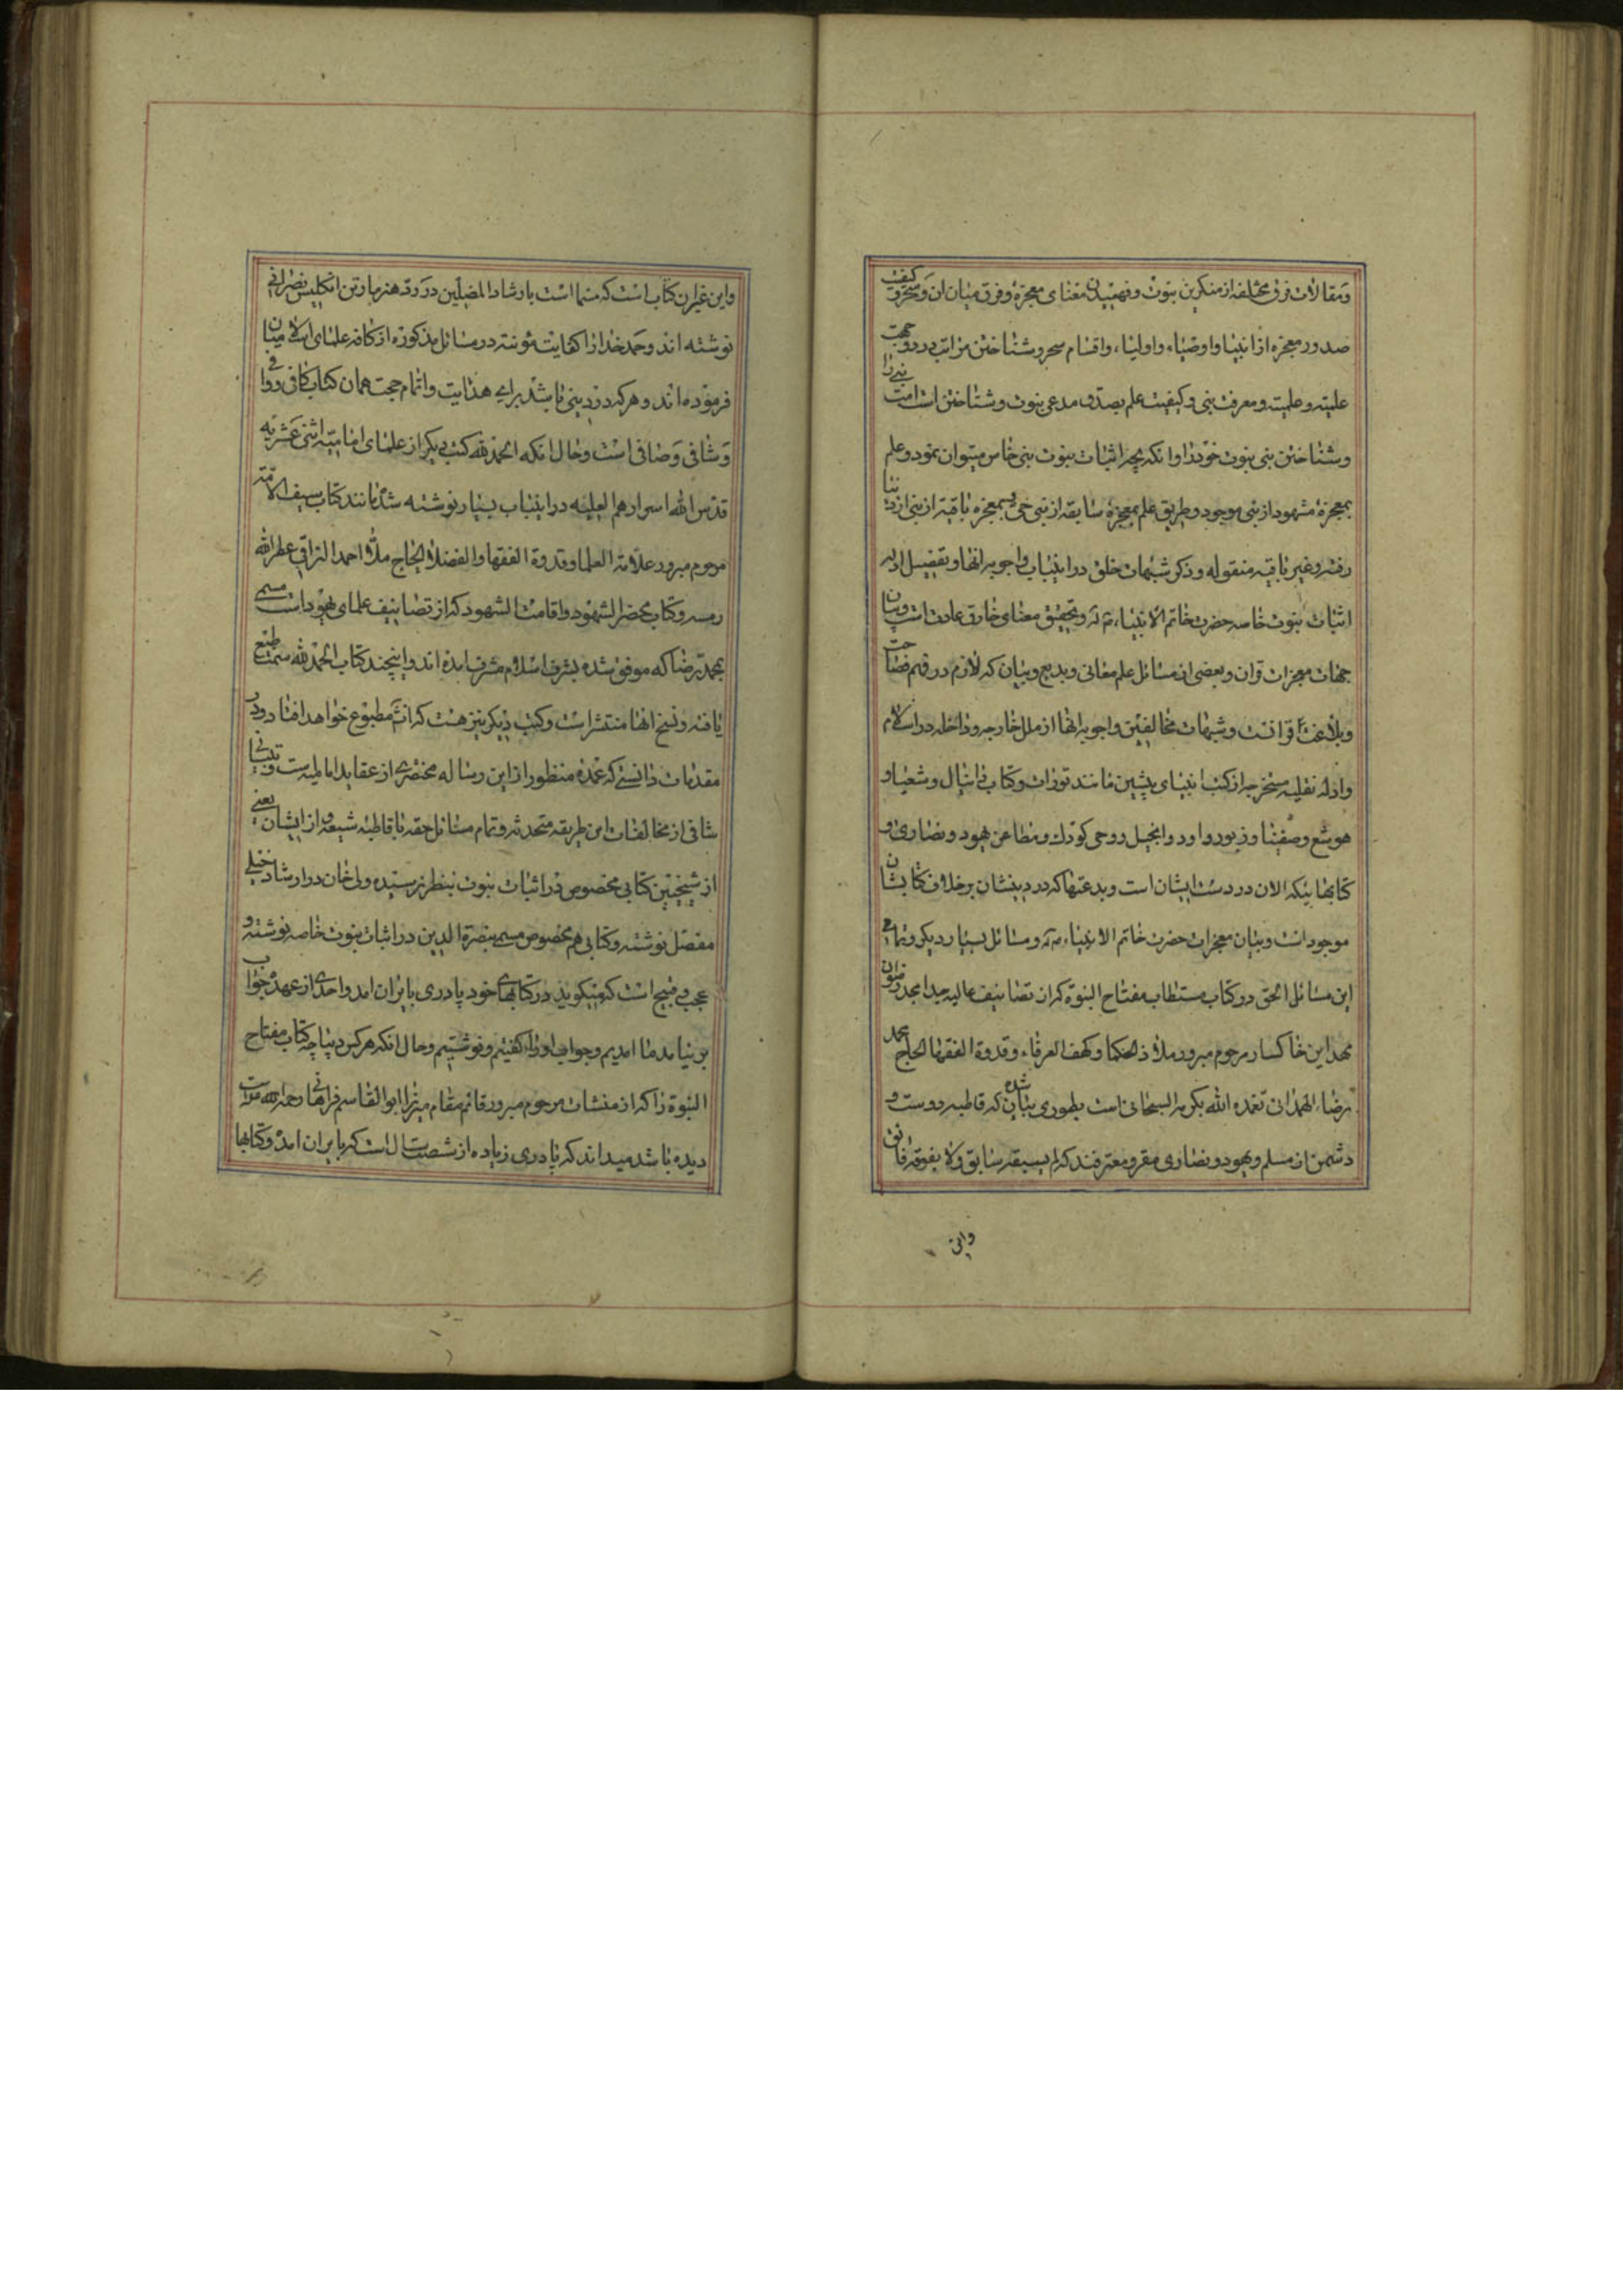 و مقالات فرق مختلفه از منکرین نبوت و فهمیدن معنای معجزه و فرق میان ان و سحر و کیفیت
صدور معجزه از انبیا و اوصیاء و اولیاء و اقسام سحر و شناختن مراتب در دو جهت
علمیه و عملیه و معرفت نبی و کیفیت علم بصدق مدعی نبوت و شناختن است امت نبی را
و شناختن نبی نبوت خود را و انکه بچه اثبات نبوت نبی خاص میتوان نمود و علم
بمعجزهٔ مشهود از نبی موجود و طریق علم بمعجزهٔ سابقه از نبی حی بمعجزه باقیه از نبی از دنیا
رفته و غیر باقیه منقوله و ذکر شبهات خلق در اینباب و اجوبه انها و تفصیل ادله
اثبات نبوت خاصه حضرت خاتم الانبیاء و تحقیق معنای خارق عادت است و بیان
جهات معجزات قران و بعضی از مسائل علم معانی و بدیع و بیان که لازم در فهم فصاحت
و بلاغت قرانست و شبهات مخالفین و اجوبه انها از ملل خارجه و داخله در اسلام
و ادله نقلیه مستخرجه از کتب انبیای پیشین مانند تورات و کتاب دانیال و شعیا و
هوشع و صفینا و زبور داود و انجیل و وحی کودک و مطاعن یهود و نصاری و
کتابهائیکه الان در دست ایشان است و بدعتها که در دینشان برخلاف کتابشان
موجود است و بیان معجزات حضرت خاتم الانبیاء و مسائل بسیار دیگر و تمامی
این مسائل الحق در کتاب مستطاب مفتاح النبوة که از تصانیف عالیه جد امجد رضوان
مهد این خاکسار مرحوم مبرور ملاذ الحکما و کهف العرفاء و قدوة الفقها الحاج محمد
رضا الهمدانی تغمده الله بکرمه السبحانی است بطوری بیان شده که قاطبه دوست و
دشمن از مسلم و یهود و نصاری مقر و معترفند که لم یسبقه سابق و لا یفوقه فائق
واین
واین غیر ان کتاب است که مسما است بارشاد المضلین در رد هنر مارتن انگلیس نصرانی
نوشته اند و حمد خدا را کفایت مؤنته در مسائل مذکوره از کافه علمای اسلامیان
فرموده اند و هر که درد دینی باشد برای هدایت و اتمام حجت همان کتاب کافی و وافی
و شافی و صافی است و حال انکه الحمد لله کتب دیگر از علمای امامیه اثنی عشریه
قدس الله اسرارهم العلیه در اینباب بسیار نوشته شده مانند کتاب سیف الامه
مرحوم مبرور علامة العلما و قدوة الفقها و الفضلا الحاج ملا احمد النراقی عطر الله
رمسه و کتاب محضر الشهود و اقامت الشهود که از تصانیف علمای یهود است مسمی
بمحمد رضا که موفق شده بشرف اسلام مشرف امده اند و اینچند کتاب الحمد لله سمت طبع
یافته و نسخ انها منتشر است و کتب دیگر نیز هست که انشاء مطبوع خواهد افتاد و در
مقدمات دانستی که عمده منظور از این رساله مختصری از عقاید امامیه ست و تبیانی
شافی از مخالفات این طریقه متحدثه و تمام مسائل حقه با قاطبه شیعه و از ایشان یعنی
از شیخیین کتابی مخصوص در اثبات نبوت بنظر نرسیده ولی خان در ارشاد خیلی
مفصل نوشته و کتابی هم مخصوص مسمی بنصرة الدین در اثبات نبوت خاصه نوشته و
عجب و قبیح است که میگوید در کتابهای خود پادری بایران امد و احدی از عهدهٔ جواب
بر نیامد ما امدیم و جواب او را گفتیم و نوشتیم و حال انکه هر کس دیباچه کتاب مفتاح
النبوة را که از منشات مرحوم مبرور قائم مقام میرزا ابو القاسم فراهانی رحمه الله است
دیده باشد میداند که پادری زیاده از شصت سال است که بایران امده و کتابها